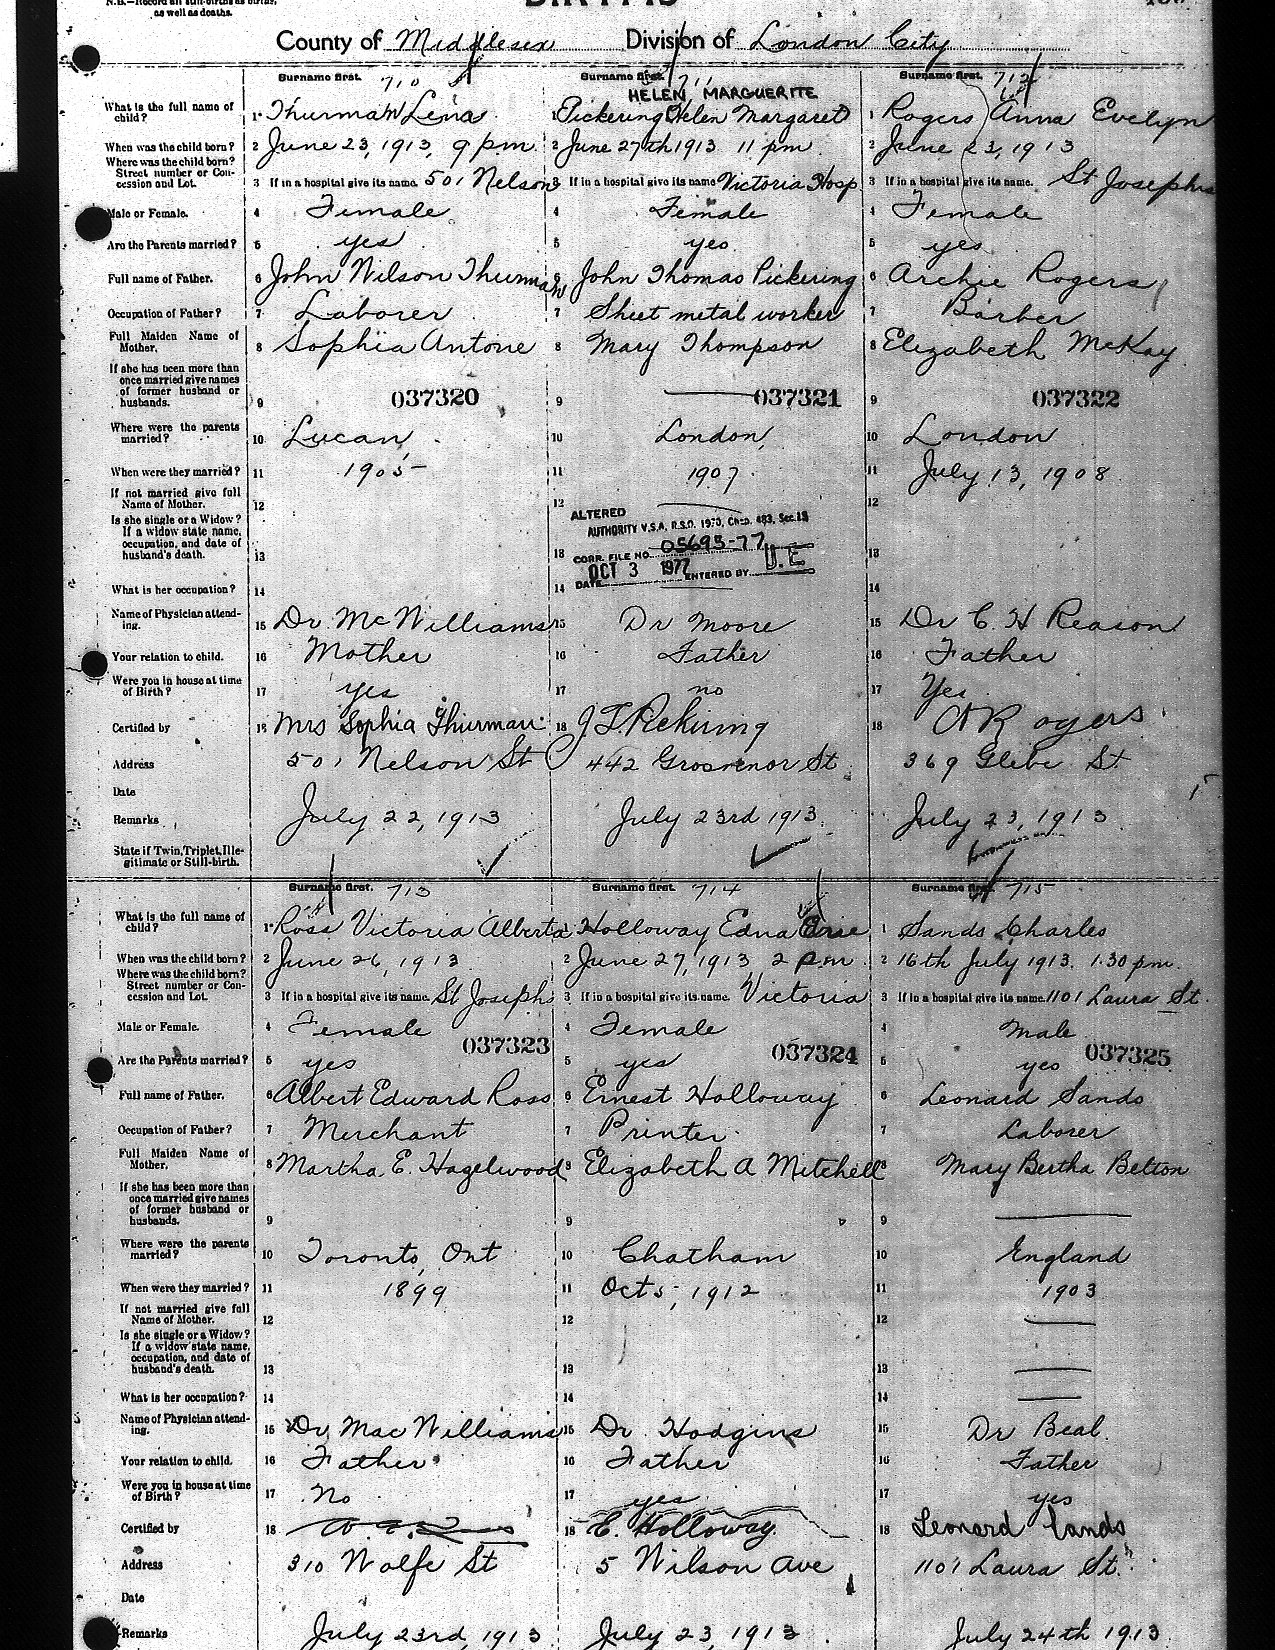 N.B.—Record all still-births as births,
as well as deaths.
BIRTHS
County of Middlesex Division of London City
Surname first. 710 Surname first. 711 Surname first. 712
HELEN MARGUERITE
What is the full name of child? 1 Thurman Lena 1 Pickering Helen Margaret 1 Rogers Anna Evelyn
When was the child born? 2 June 23, 1913, 9 p.m. 2 June 27th 1913 11 pm 2 June 23, 1913
Where was the child born? Street number or Concession and Lot. 3 If in a hospital give its name. 501 Nelson 3 If in a hospital give its name Victoria Hosp 3 If in a hospital give its name. St Josephs
Male or Female. 4 Female 4 Female 4 Female
Are the Parents married? 5 yes 5 yes 5 yes
Full name of Father. 6 John Wilson Thurman 6 John Thomas Pickering 6 Archie Rogers
Occupation of Father? 7 Laborer 7 Sheet metal worker 7 Barber
Full Maiden Name of Mother. 8 Sophia Antone 8 Mary Thompson 8 Elizabeth McKay
If she has been more than once married give names of former husband or husbands. 9 037320 9 037321 9 037322
Where were the parents married? 10 Lucan 10 London 10 London
When were they married? 11 1905 11 1907 11 July 13, 1908
If not married give full Name of Mother. 12 12 12
ALTERED
AUTHORITY V.S.A. R.S.O. 1970, Chap. 483, Sec. 13
Is she single or a Widow? If a widow state name, occupation, and date of husband's death. 13 13 CORR. FILE NO. 05693-77 13
DATE OCT 3 1977 ENTERED BY U.E
What is her occupation? 14 14 14
Name of Physician attending. 15 Dr. McWilliams 15 Dr Moore 15 Dr C. H Reason
Your relation to child. 16 Mother 16 Father 16 Father
Were you in house at time of Birth? 17 yes 17 no 17 Yes
Certified by 18 Mrs Sophia Thurman 18 J T Pickering 18 A Rogers
Address 501 Nelson St 442 Grosvenor St 369 Glebe St
Date
Remarks July 22, 1913 July 23rd 1913. July 23, 1913
State if Twin, Triplet, Illegitimate or Still-birth.
Surname first. 713 Surname first. 714 Surname first. 715
What is the full name of child? 1 Ross Victoria Alberta 1 Holloway Edna 1 Sands Charles
When was the child born? 2 June 26, 1913 2 June 27, 1913 2 p.m. 2 16th July 1913. 1.30 pm.
Where was the child born? Street number or Concession and Lot. 3 If in a hospital give its name. St Joseph 3 If in a hospital give its name. Victoria 3 If in a hospital give its name. 1101 Laura St.
Male or Female. 4 Female 4 Female 4 Male
037323 037324 037325
Are the Parents married? 5 yes 5 yes 5 yes
Full name of Father. 6 Albert Edward Ross 6 Ernest Holloway 6 Leonard Sands
Occupation of Father? 7 Merchant 7 Printer 7 Laborer
Full Maiden Name of Mother. 8 Martha E. Hazelwood 8 Elizabeth A Mitchell 8 Mary Bertha Belton
If she has been more than once married give names of former husband or husbands. 9 9 9
Where were the parents married? 10 Toronto, Ont 10 Chatham 10 England
When were they married? 11 1899 11 Oct 5, 1912 11 1903
If not married give full Name of Mother. 12 12 12
Is she single or a Widow? If a widow state name, occupation, and date of husband's death. 13 13 13
What is her occupation? 14 14 14
Name of Physician attending. 15 Dr. MacWilliams 15 Dr. Hodgins 15 Dr Beal.
Your relation to child. 16 Father 16 Father 16 Father
Were you in house at time of Birth? 17 No 17 yes 17 yes
Certified by 18 18 E. Holloway 18 Leonard Sands
Address 310 Wolfe St 5 Wilson Ave 1101 Laura St.
Date
Remarks July 23rd, 1913 July 23, 1913 July 24th 1913